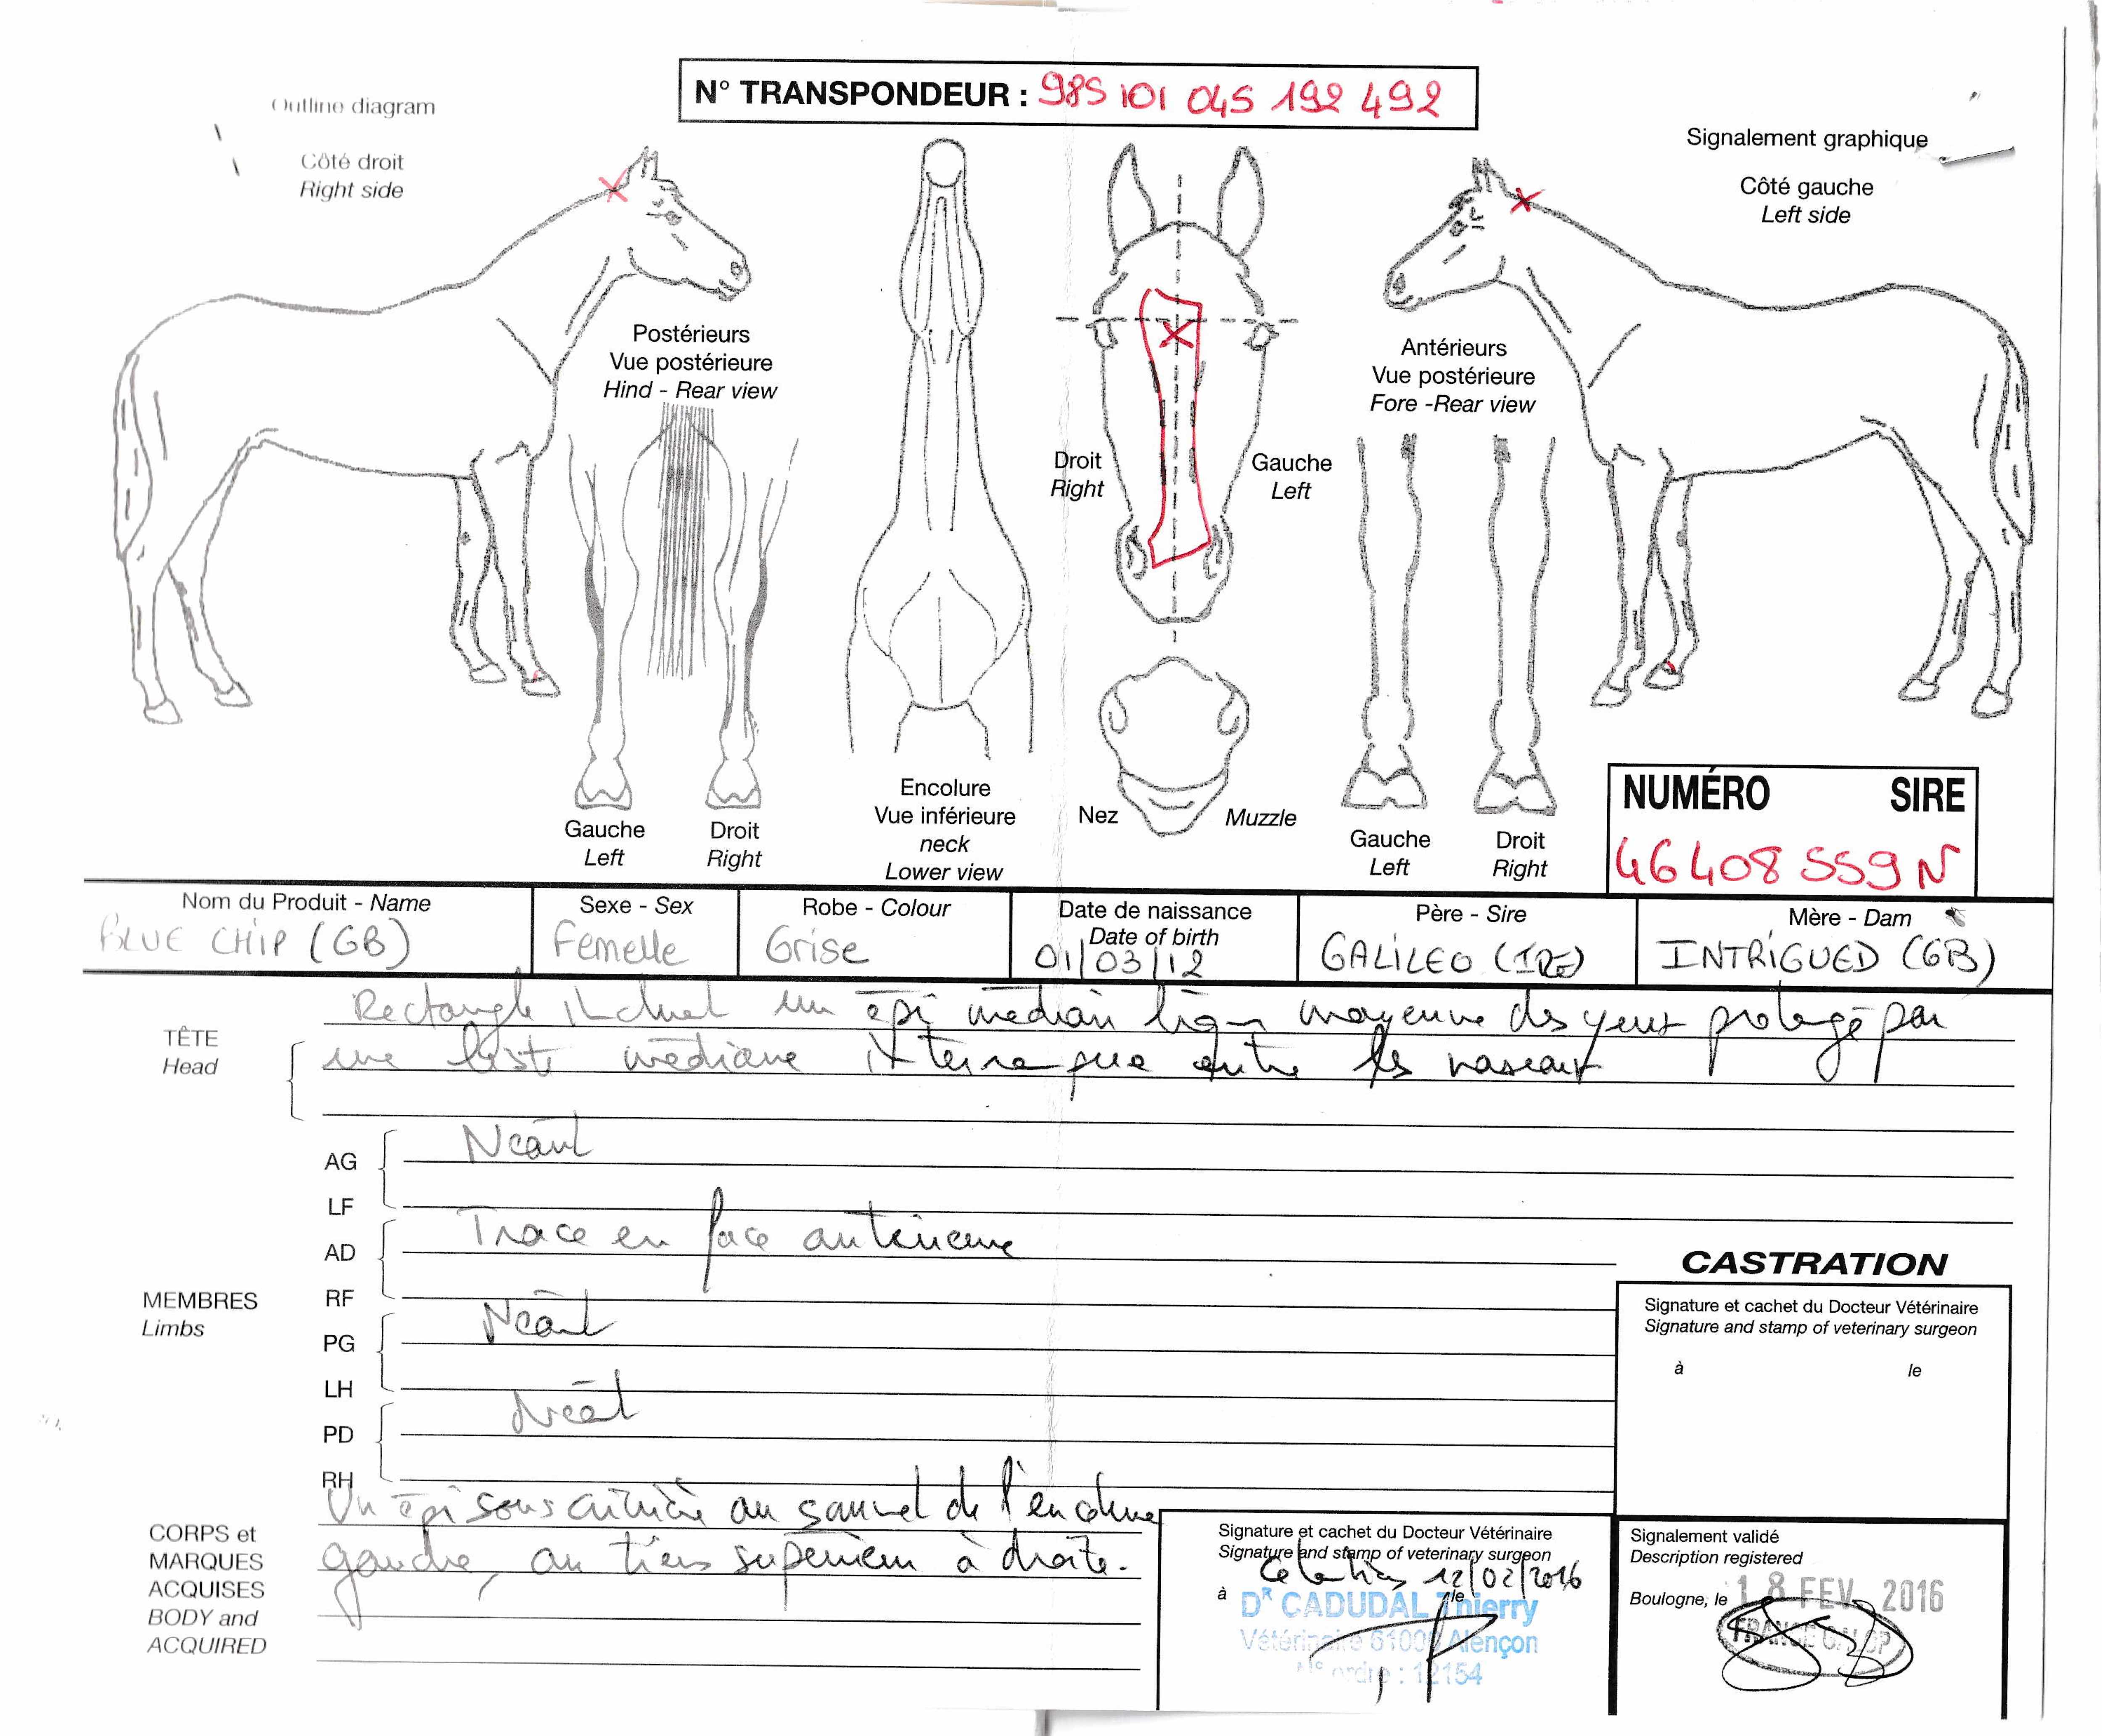 N° TRANSPONDEUR : 985 101 045 192 492
Outline diagram
Côté droit
Right side
Signalement graphique
Côté gauche
Left side
Postérieurs
Vue postérieure
Hind - Rear view
Antérieurs
Vue postérieure
Fore -Rear view
Droit
Right
Gauche
Left
Encolure
Vue inférieure
neck
Lower view
Nez
Muzzle
Gauche
Left
Droit
Right
Gauche
Left
Droit
Right
NUMÉRO SIRE
46408559N
Nom du Produit - Name
BLUE CHIP (GB)
Sexe - Sex
Femelle
Robe - Colour
Grise
Date de naissance
Date of birth
01/03/12
Père - Sire
GALILEO (IRE)
Mère - Dam
INTRIGUED (GB)
TÊTE
Head
Rectangle incluant un épi médian ligne moyenne des yeux prolongé par
une liste médiane entre les naseaux
MEMBRES
Limbs
AG
LF
Néant
AD
RF
Trace en face antérieure
PG
LH
Néant
PD
RH
Néant
CORPS et
MARQUES
ACQUISES
BODY and
ACQUIRED
Un épi sous crinière au sommet de l'encolure
gauche, au tiers supérieur à droite.
CASTRATION
Signature et cachet du Docteur Vétérinaire
Signature and stamp of veterinary surgeon
à le
Signature et cachet du Docteur Vétérinaire
Signature and stamp of veterinary surgeon
12/02/2016
à le
DR CADUDAL Thierry
Vétérinaire 61000 Alençon
N° ordre : 12154
Signalement validé
Description registered
Boulogne, le 18 FEV. 2016
FRANCE GALOP